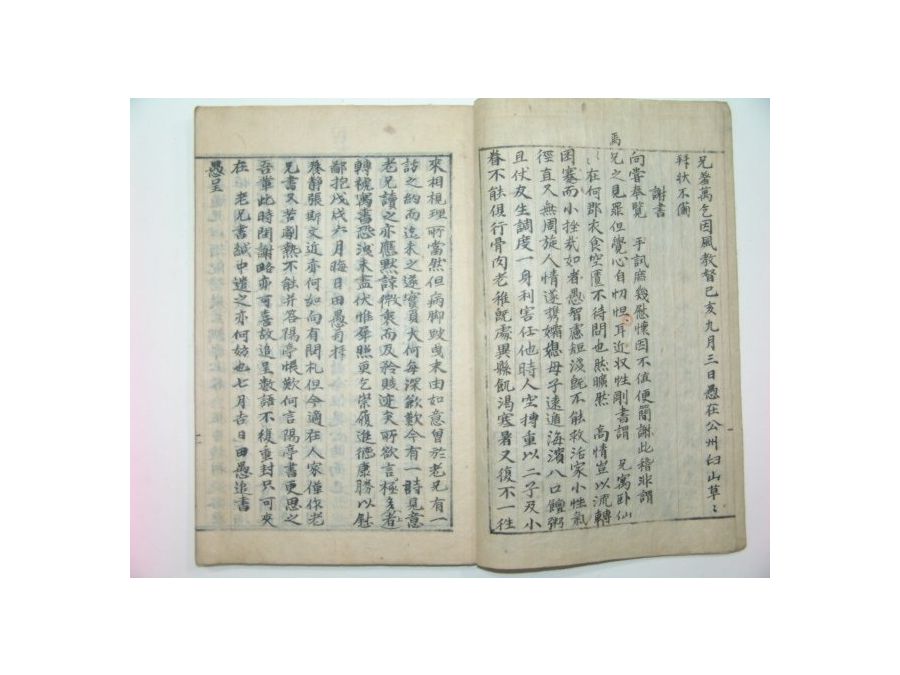 兄答萬乞因風教督己亥九月三日愚在公州臼山草〻
拜狀不備
謝書
向嘗奉覽 手訊庶幾慰懷因不值便闕謝此稽非謂
兄之見罪但覺心自忉怛耳近收性剛書謂 兄寓卧仙
〻在何郡衣食空匱不待問也然曠然 高情豈以流轉
困塞而小挫哉如者愚智慮短淺旣不能救活家小性氣
徑直又無周旋人情遂携孀媳母子遠遁海濱八口饘粥
且伏友生調度一身利害任他時人空摶重以二子及小
眷不能俱行骨肉老稚旣處異縣飢渴寒暑又復不一往
來相視理所當然但病脚跛曳末由如意曾於老兄有一
訪之約而迄未之遂實負大何每深歉歎今有一詩見意
老兄讀之亦應默諒微衷而及矜賤迹矣所欲言極多者
轉褫寓書恐洩未盡伏惟犀照更乞崇履進德康勝以慰
鄙抱戊戌六月晦日田愚再拜
發靜張斯文近亦何如向有問札但今適在人家僅作老
兄書又苦劇熱不能幷答隔亭悵歎何言隔亭書更思之
吾輩此時閉謝略亦可喜故追呈數語不復重封只可夾
在 老兄書緘中遣之亦何妨也七月吉日田愚追書
愚呈